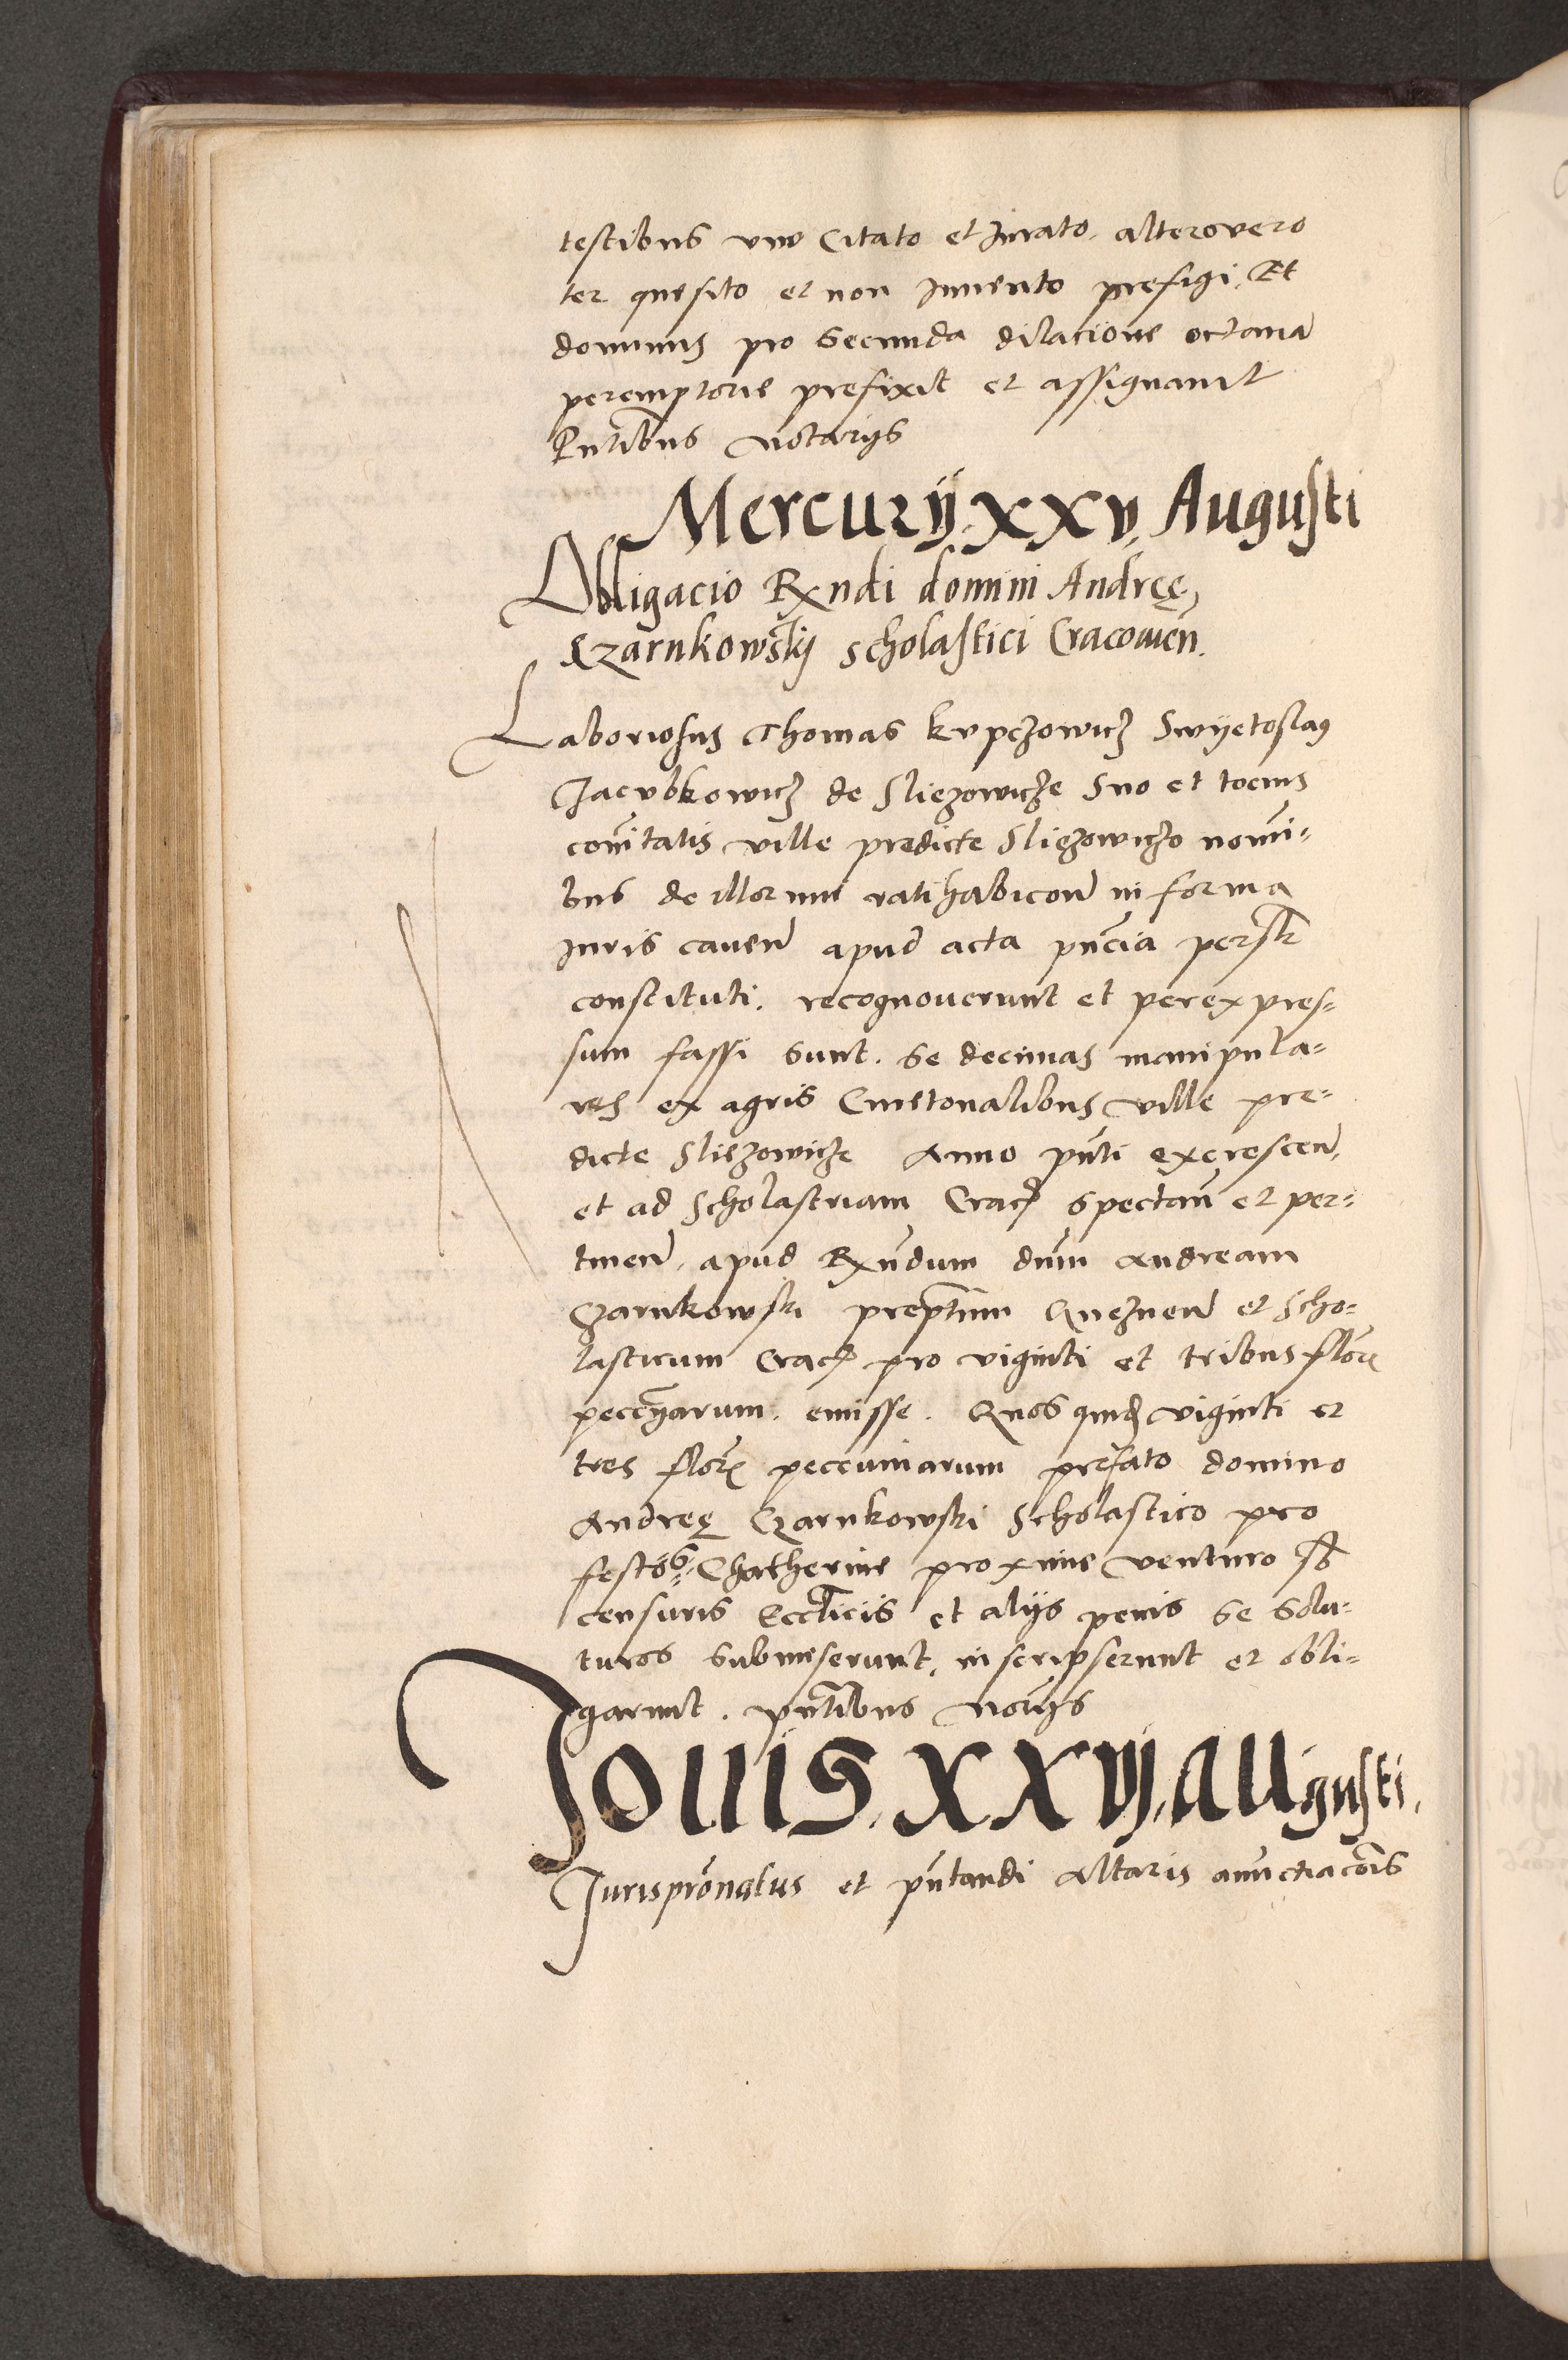 testibus uno Citato et Jurato, altero vero
ter quesito et non Invento prefigi. Et
dominus pro Secunda dilacione octavam
peremptorie prefixit et assignavit
Pntibus Notarijs
Mercurij. xxv, Augusti
Obligacio Rxndi domini Andreę,
Czarnkowskij scholastici Cracovien.
Laboriosus Thomas kvpczowicz Swyetoslaus
Jacvbkowicz de Sliezowicze Suo et tocius
comitatis ville predicte Sliezowicze nomi-
bus de illorum ratihabicon in forma
Juris caven apud acta pncia persr
constituti. recognoverunt et per expres-
sum fassi sunt. se decimas manipula-
res ex agris Cmetonalibus ville pre-
dicte Sliezowicze Anno pnti excrescen,
et ad Scholastriam Crac spectan et per-
tinen, apud Rxndum dnm Andream
Czarnkowski preptum Gneznen et Scho-
lasticum Crac pro viginti et tribus flor
peccunarum. emisse. Quos quid viginti et
tres flor peccuniarum prefato domino
Andreę Czarnkowski Scholastico pro
festo S. Chatherine proxime venturo sb
censuris Eccliicis et alijs penis se solu-
turos submiserunt, inscripserunt et obli-
garunt. pntibus Norijs
Jovis. xxvj, Augusti.
Jurispronatus et pntandi Altaris anunctiacois